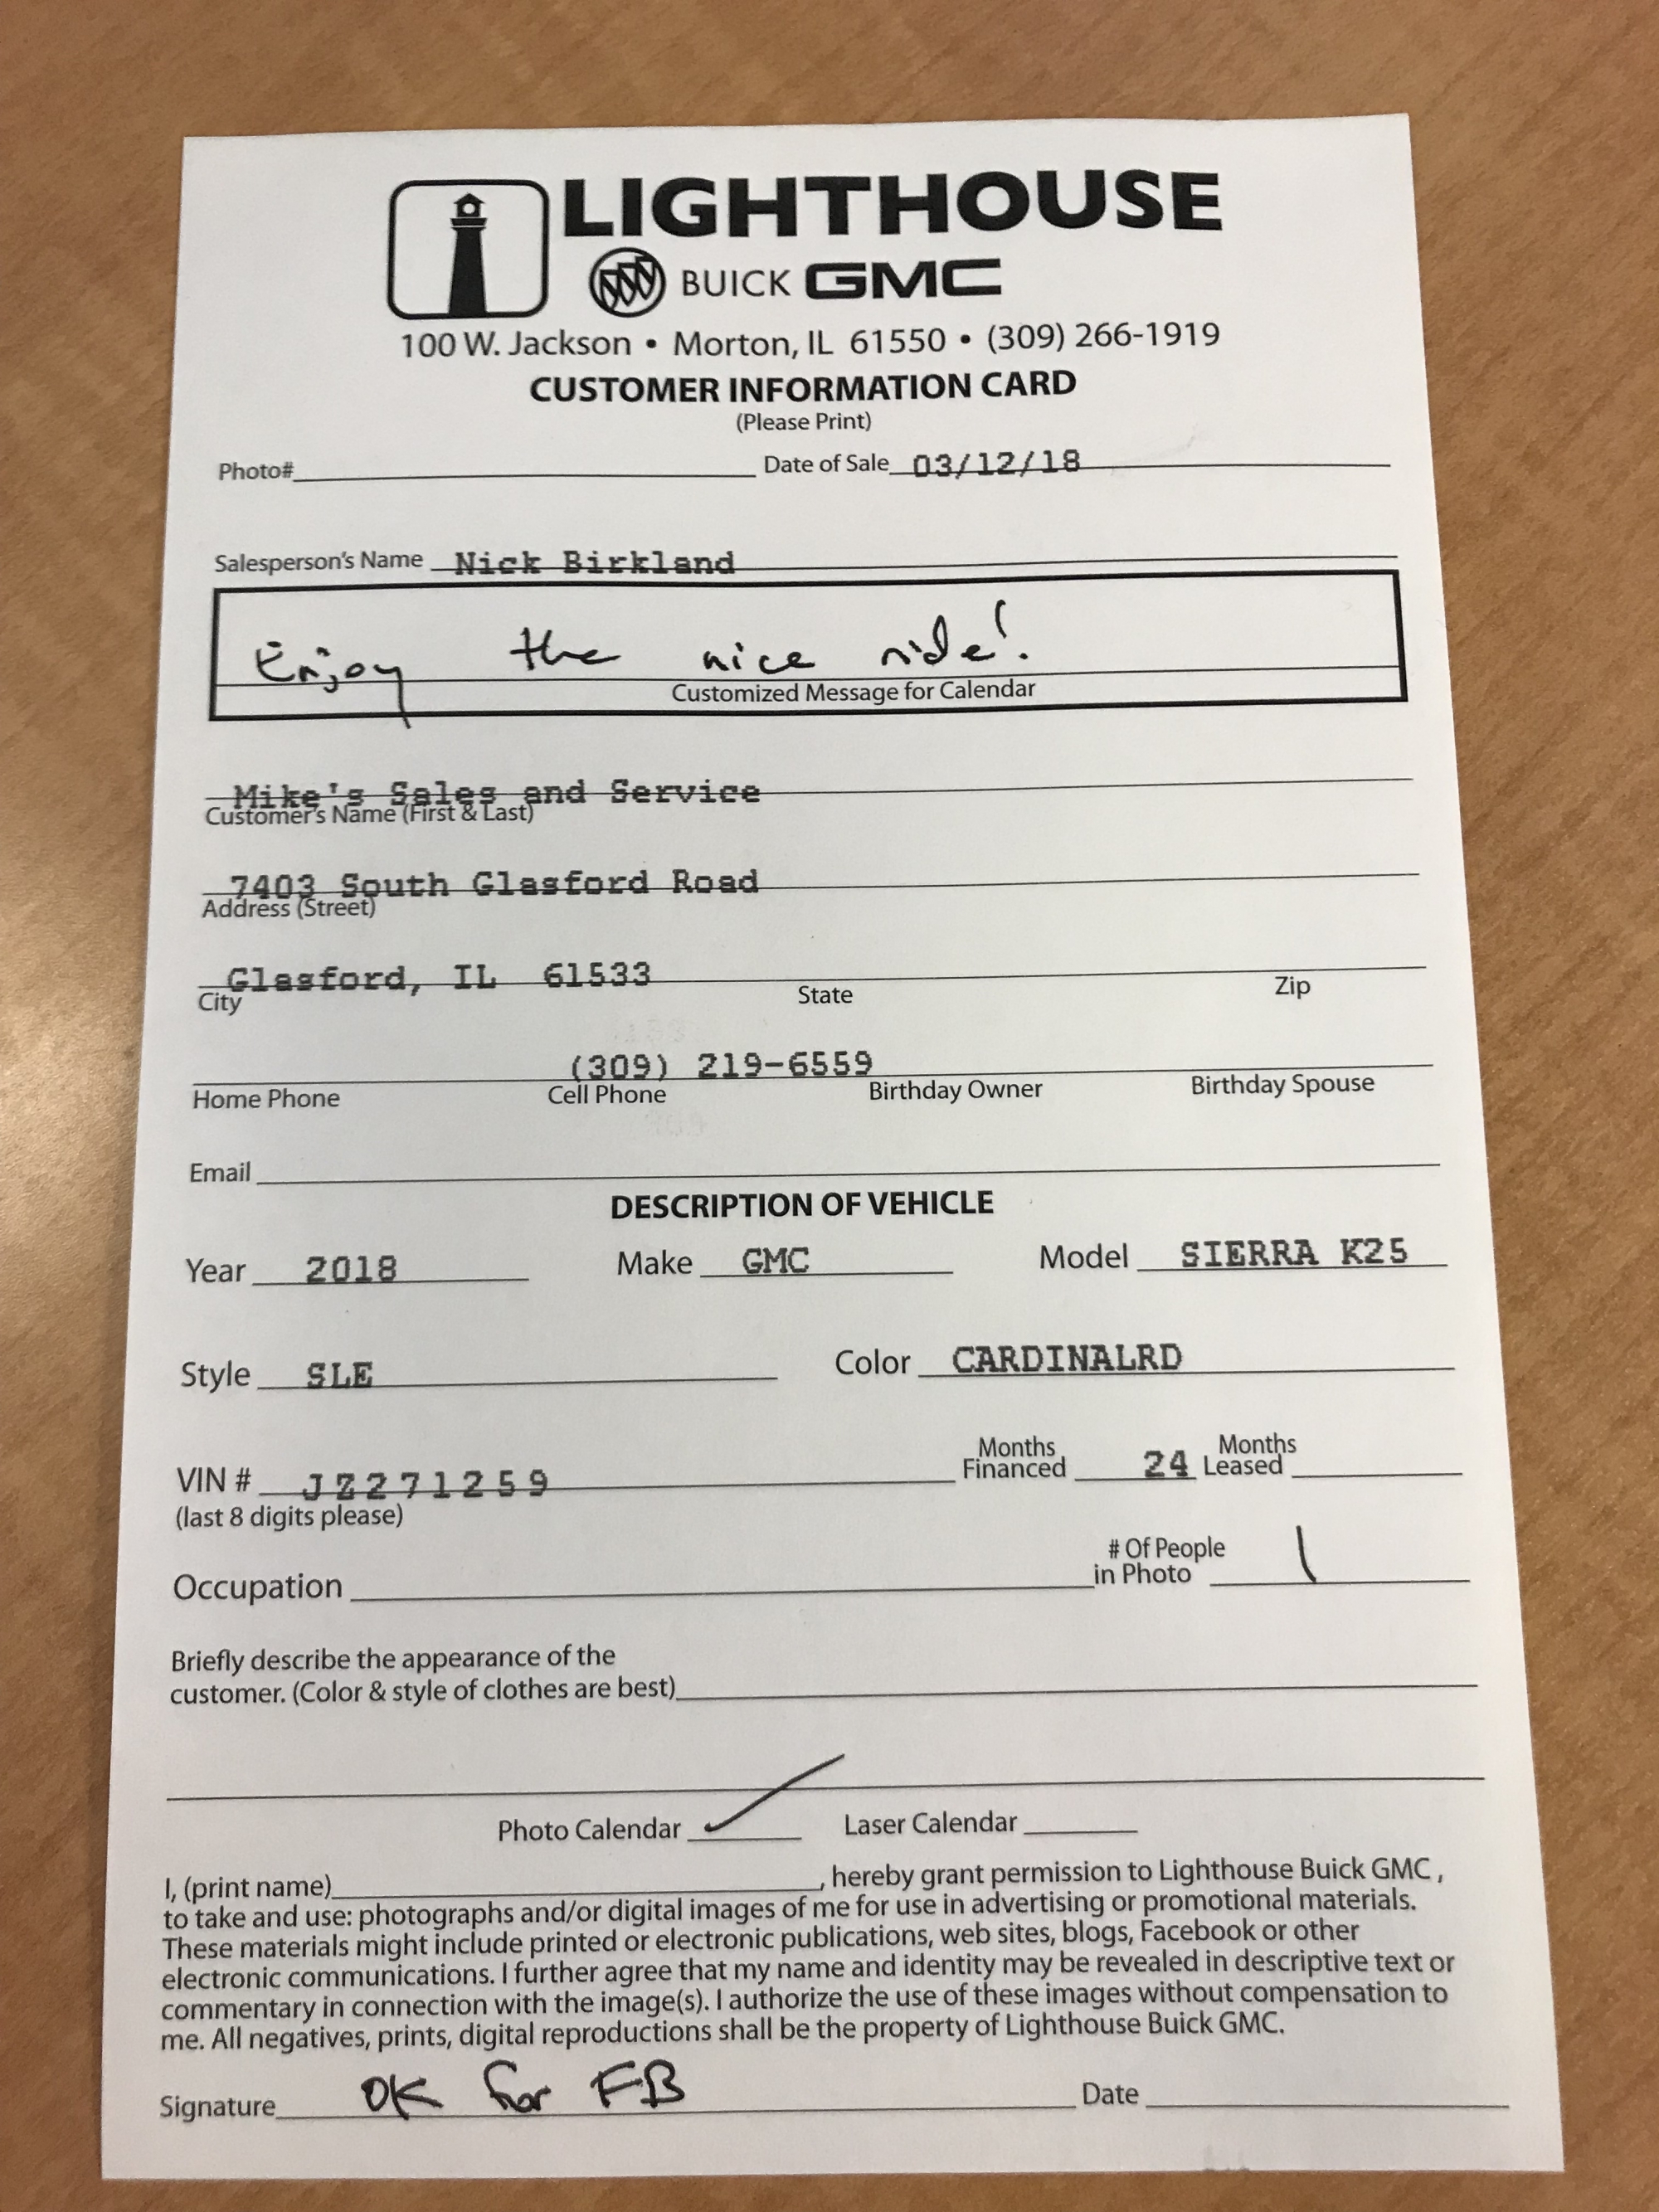 LIGHTHOUSE
BUICK GMC
100 W. Jackson • Morton, IL 61550 • (309) 266-1919
CUSTOMER INFORMATION CARD
(Please Print)
Photo# Date of Sale 03/12/18
Salesperson's Name Nick Birkland
Enjoy the nice ride!
Customized Message for Calendar
Mike's Sales and Service
Customer's Name (First & Last)
7403 South Glasford Road
Address (Street)
Glasford, IL 61533
City State Zip
(309) 219-6559
Home Phone Cell Phone Birthday Owner Birthday Spouse
Email
DESCRIPTION OF VEHICLE
Year 2018 Make GMC Model SIERRA K25
Style SLE Color CARDINALRD
VIN # JZ271259 Months Financed 24 Months Leased
(last 8 digits please)
Occupation # Of People in Photo 1
Briefly describe the appearance of the
customer. (Color & style of clothes are best)
Photo Calendar ✓ Laser Calendar
I, (print name) , hereby grant permission to Lighthouse Buick GMC ,
to take and use: photographs and/or digital images of me for use in advertising or promotional materials.
These materials might include printed or electronic publications, web sites, blogs, Facebook or other
electronic communications. I further agree that my name and identity may be revealed in descriptive text or
commentary in connection with the image(s). I authorize the use of these images without compensation to
me. All negatives, prints, digital reproductions shall be the property of Lighthouse Buick GMC.
Signature OK for FB Date